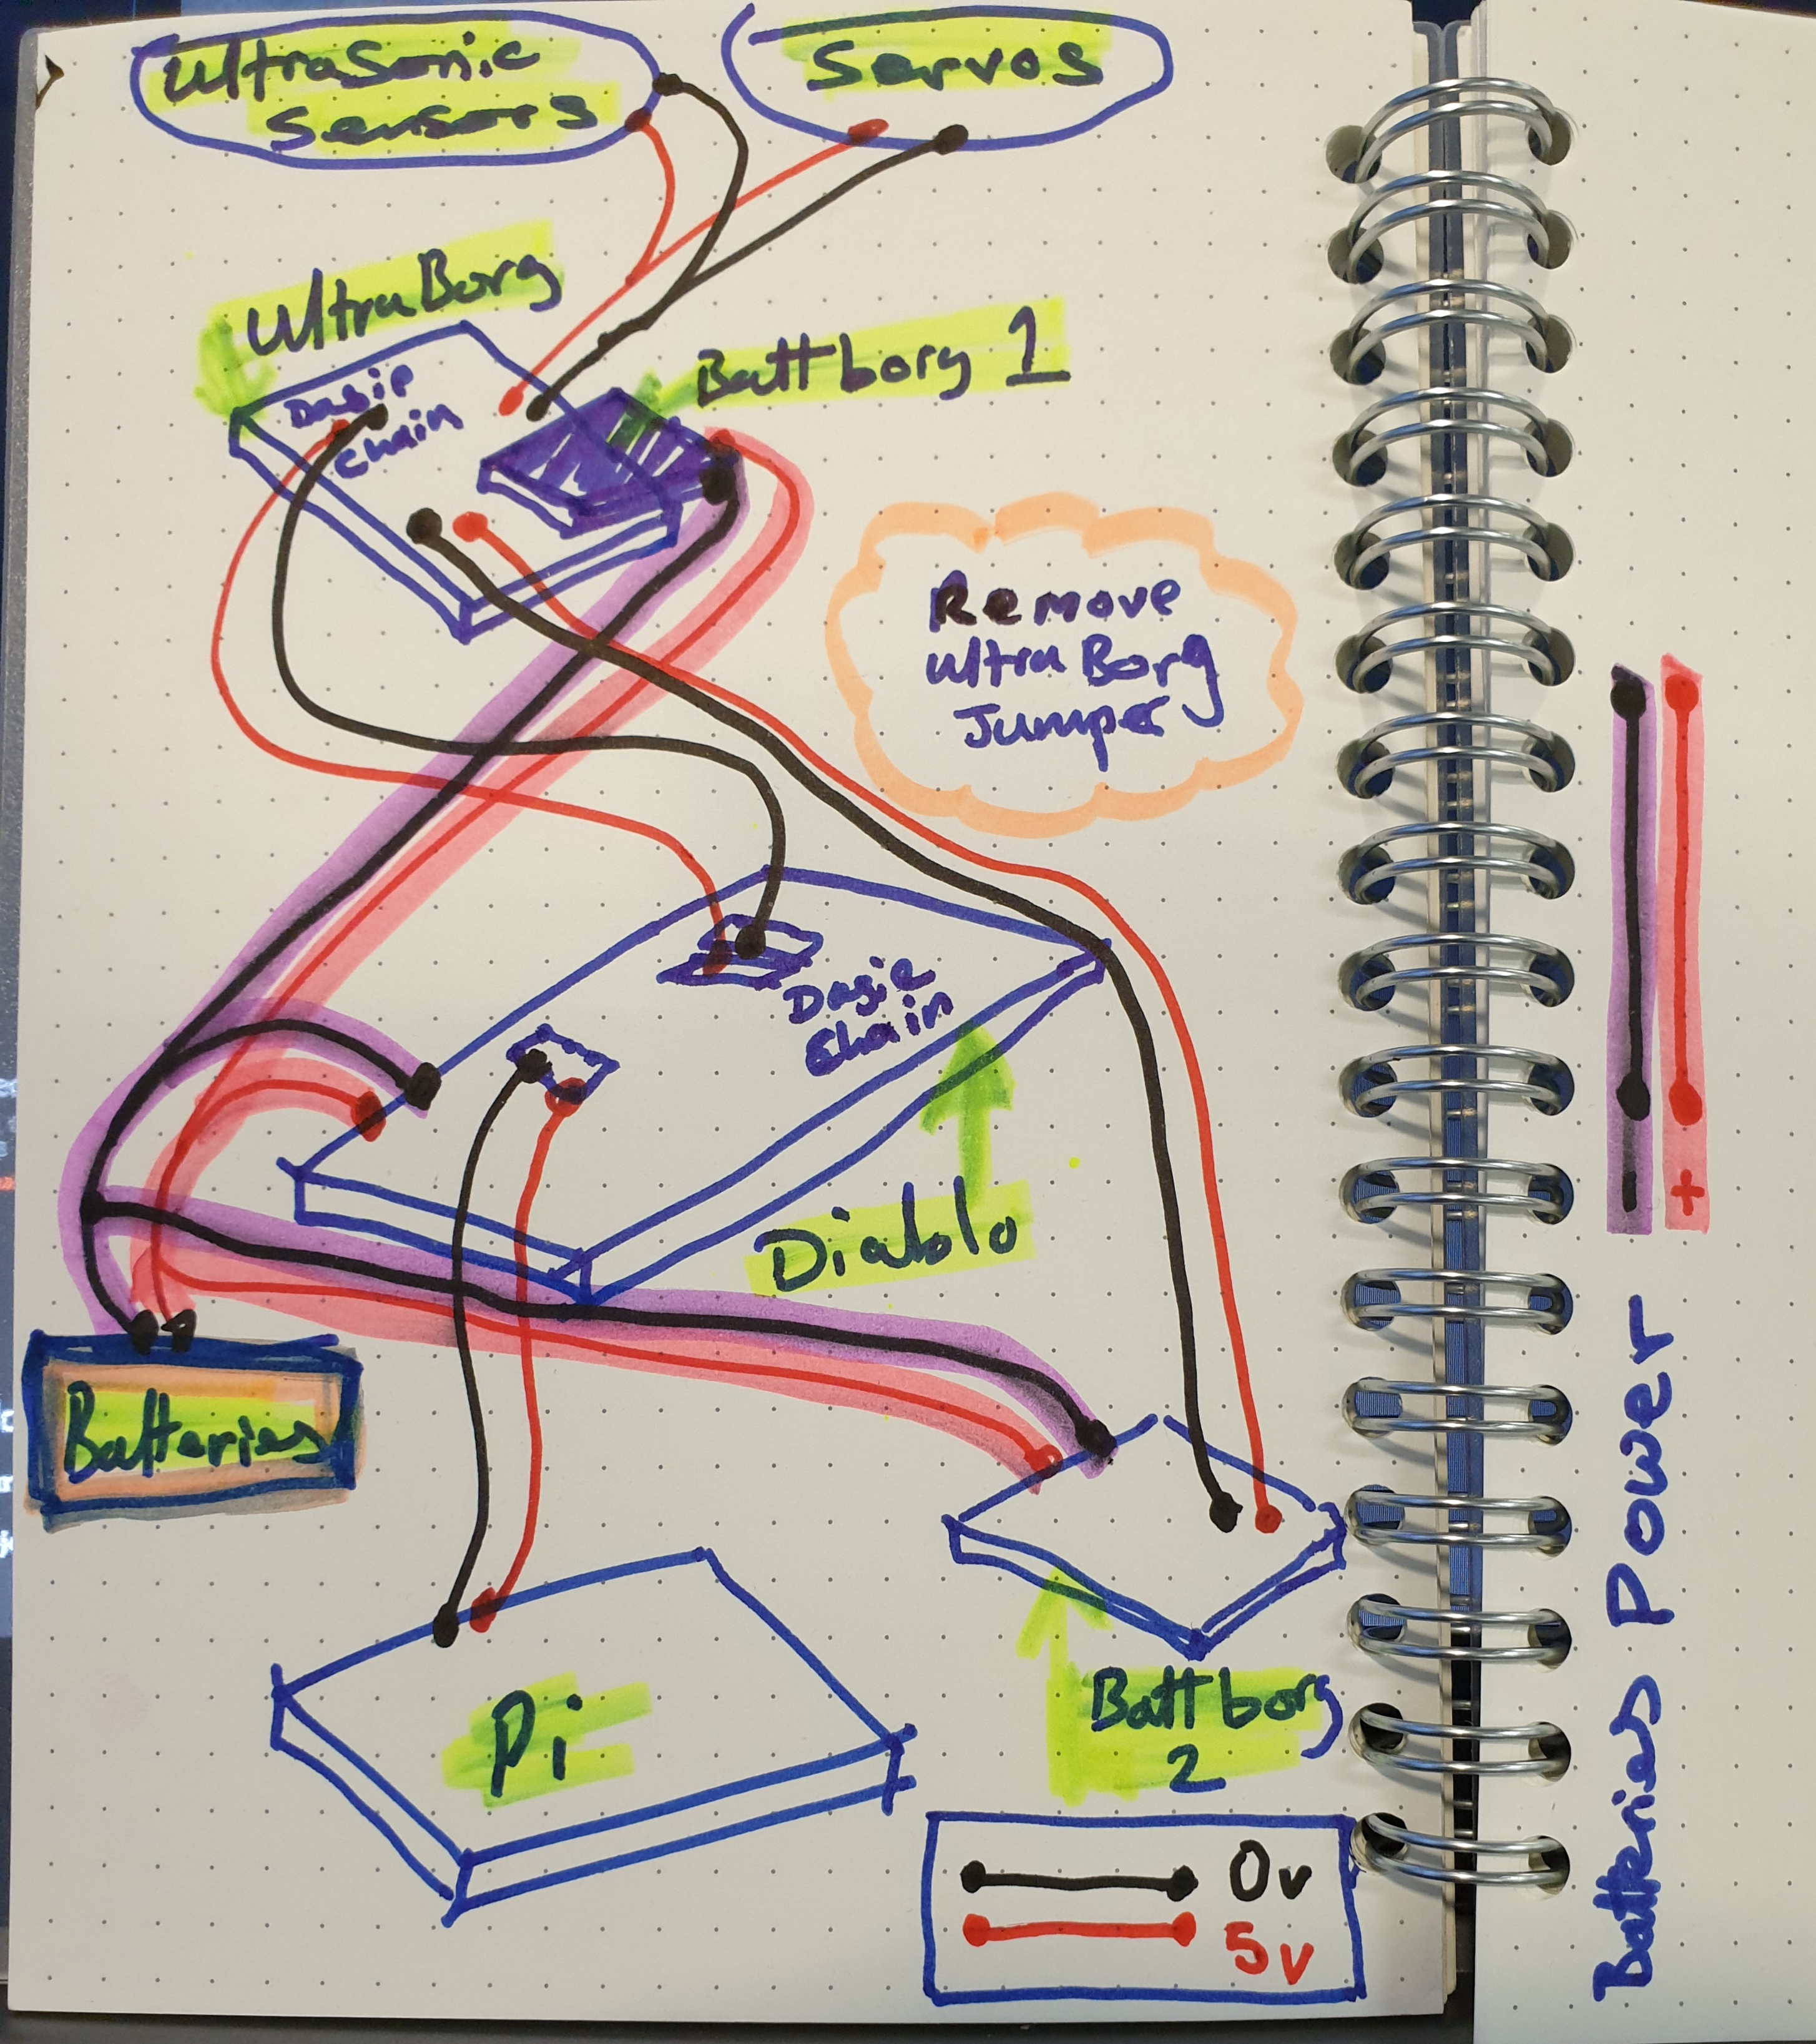 UltraSonic
Sensors
Servos
UltraBorg
Battborg 1
Dasie
chain
Remove
UltraBorg
Jumper
Dasie
Chain
Diablo
Batteries
Pi
Battborg
2
0v
5v
- +
Batteries Power